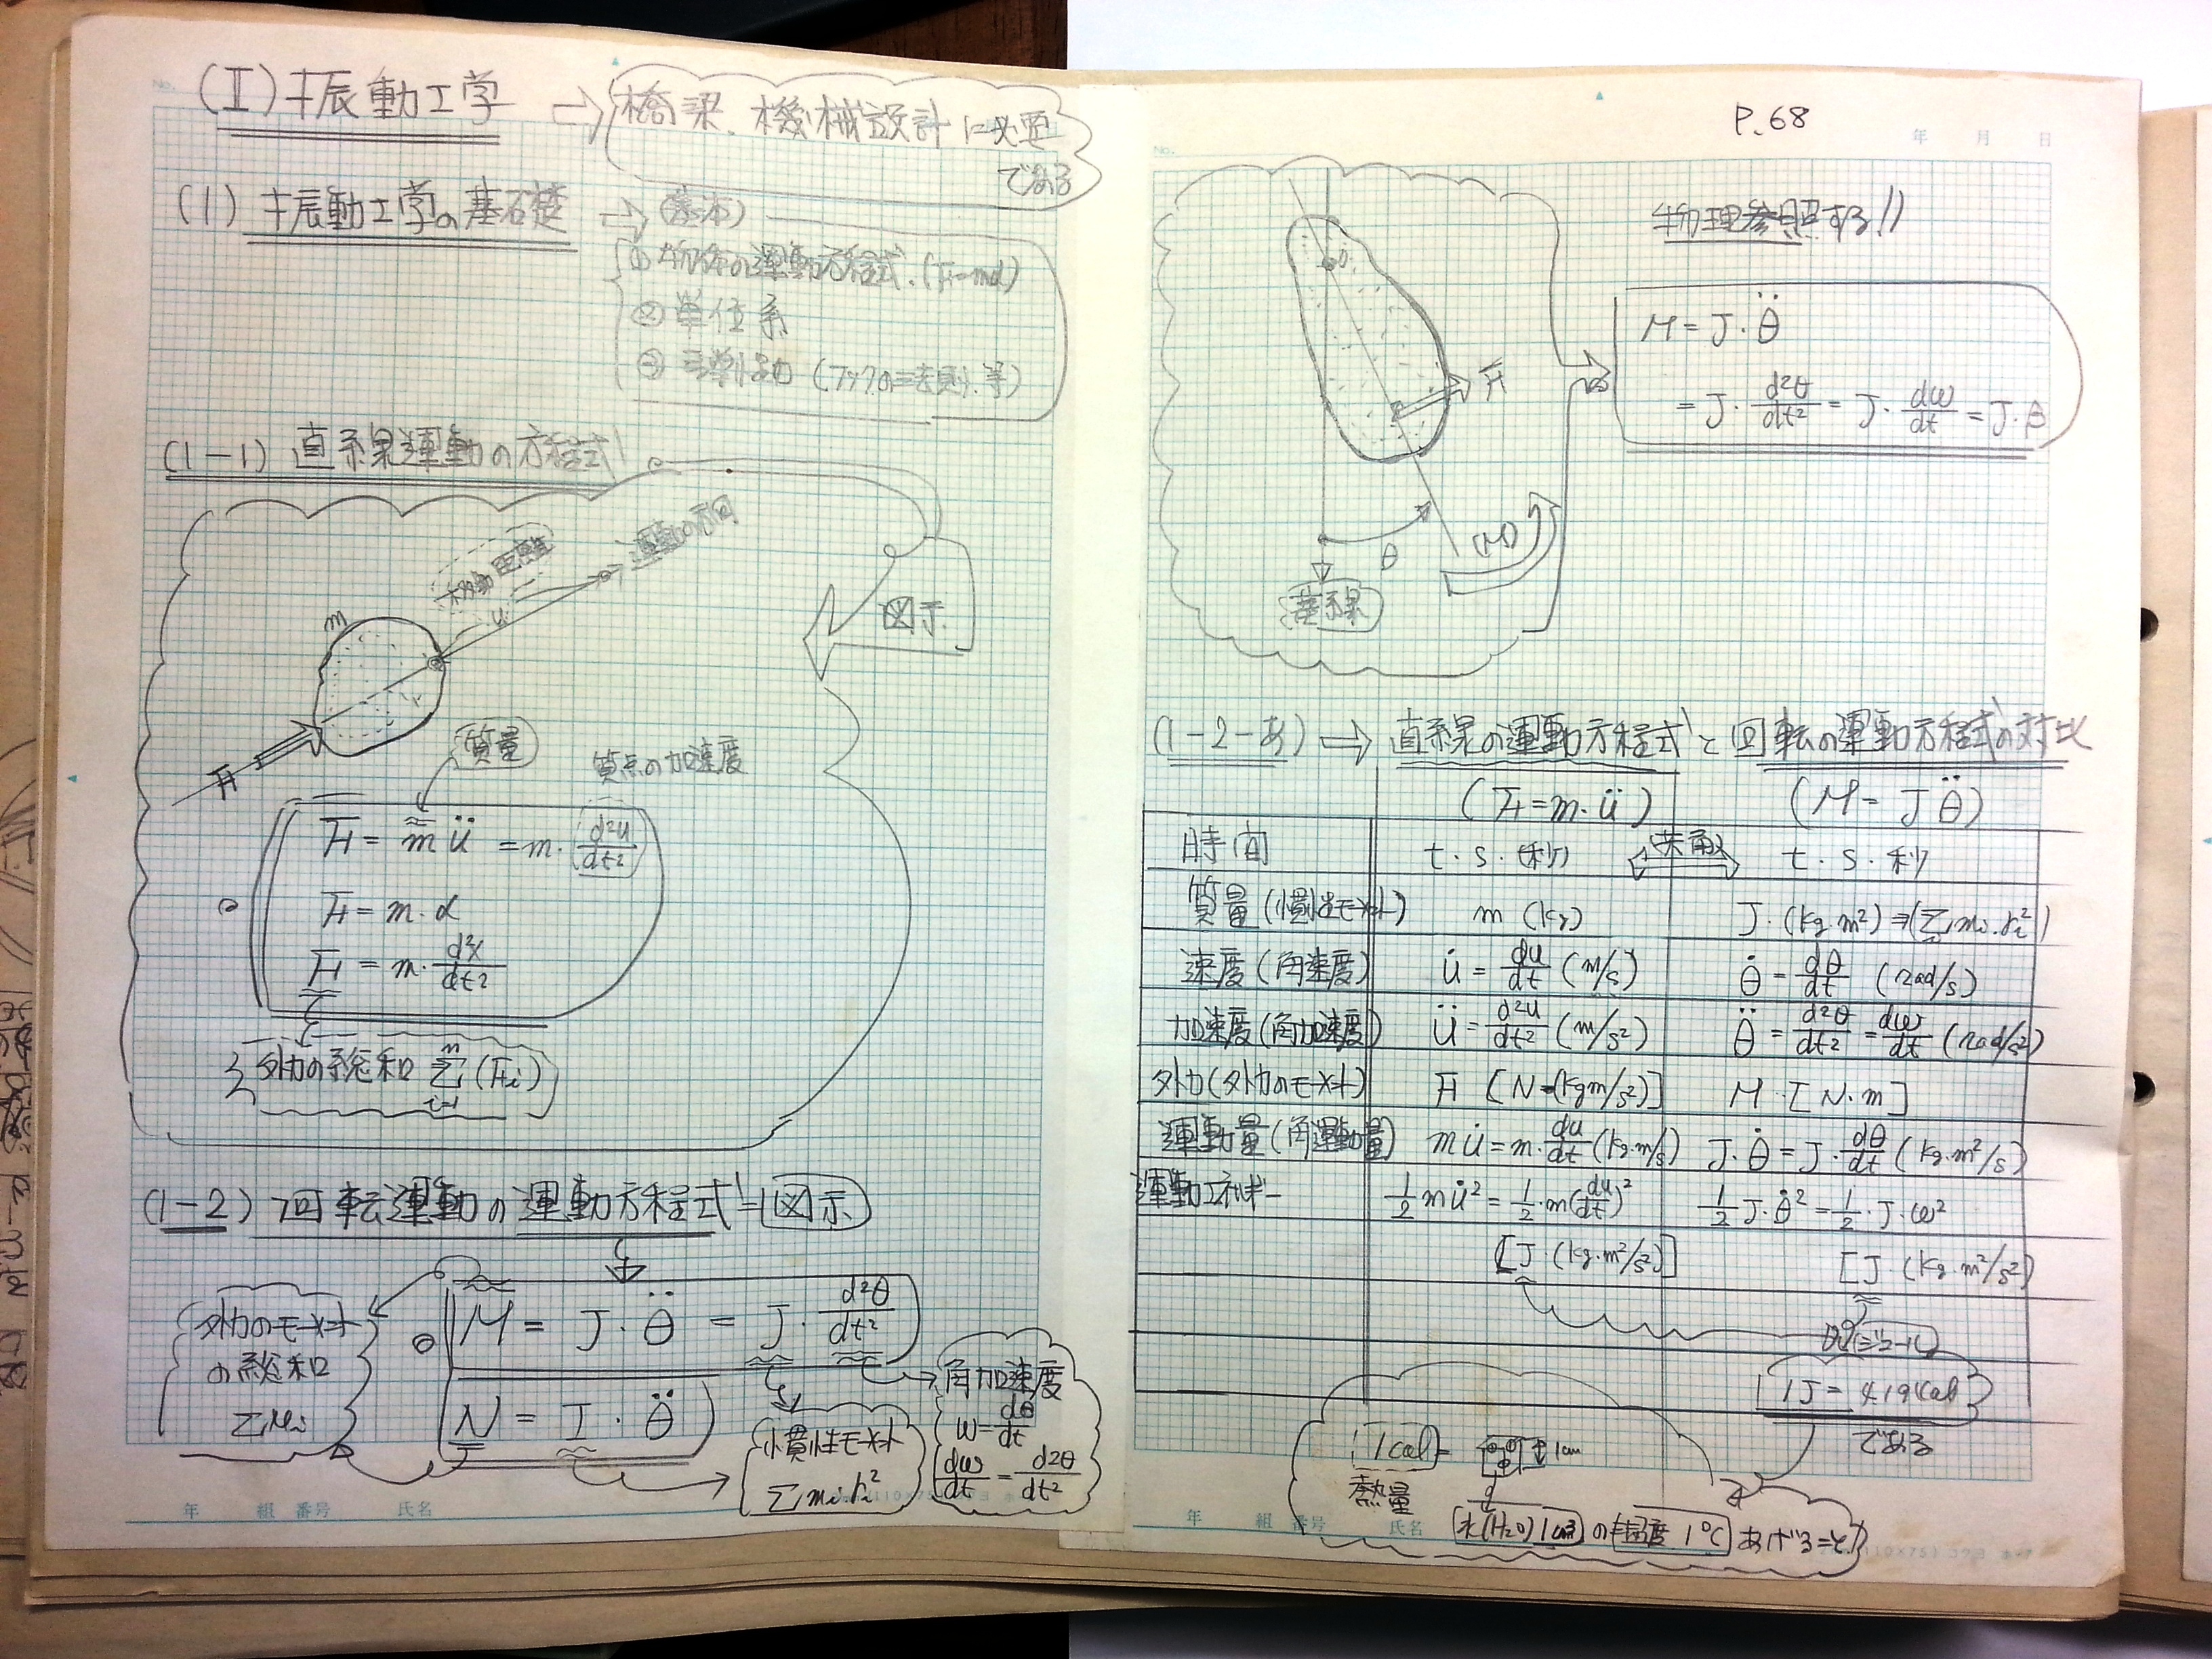 (I) 振動工学 ⇒ 橋梁、機械設計に必要
である
(1) 振動工学の基礎 → (基本)
① 物体の運動方程式.(F=mα)
② 単位系
③ (フックの法則.等)
(1-1) 直線運動の方程式
運動の方向
移動距離
u
m
図示
F
質量
質点の加速度
F = m ü = m・d²u/dt²
F = m・α
F = m・d²x/dt²
外力の総和 Σ(Fi)
n
i=1
(1-2) 回転運動の運動方程式=図示
M = J・θ̈ = J・d²θ/dt²
N = I・θ̈
外力のモーメント
の総和
ΣMi
慣性モーメント
Σmi ri²
角加速度
ω = dθ/dt
dω/dt = d²θ/dt²
年 組 番号 氏名
No.
P.68
年 月 日
物理参照する!!
O
F
θ
(M)
基線
M = J・θ̈
= J・d²θ/dt² = J・dω/dt = J・β
(1-2-あ) ⇒ 直線の運動方程式と回転の運動方程式の対比
(F=m・ü) (M= Jθ̈)
時間 t・s・(秒) (共通) t・s・秒
質量(慣性モーメント) m (kg) J・(kg・m²) ⇒ (Σmi・ri²)
速度(角速度) u̇ = du/dt (m/s) θ̇ = dθ/dt (rad/s)
加速度(角加速度) ü = d²u/dt² (m/s²) θ̈ = d²θ/dt² = dω/dt (rad/s²)
外力(外力のモーメント) F [N=(kgm/s²)] M・[N・m]
運動量(角運動量) m u̇ = m・du/dt (kg・m/s) J・θ̇ = J・dθ/dt (kg・m²/s)
運動エネルギー 1/2 m u̇² = 1/2・m(du/dt)² 1/2 J・θ̇² = 1/2・J・ω²
[J・(kg・m²/s²)] [J・(kg・m²/s²)]
(ジュール)
1J = 4.19cal
である
1cal = 1cm
熱量
水(H₂O) 1cm³ の温度 1℃ あげること
年 組 番号 氏名